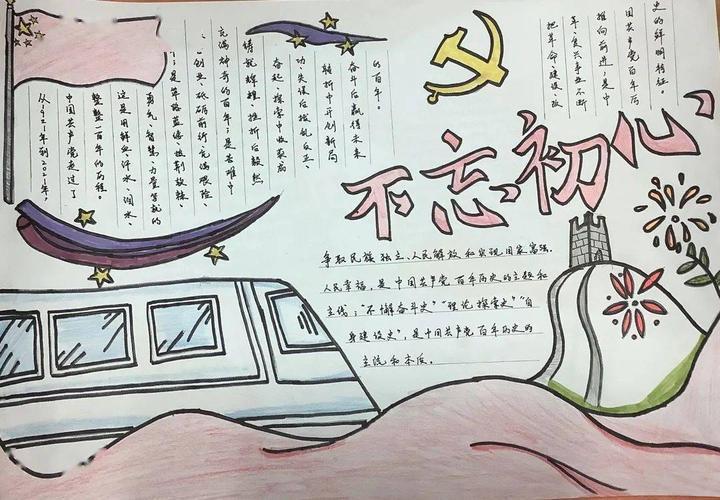 不忘初心
从1921年到2021年,
中国共产党走过了
整整一百年的历程。
这是用鲜血、汗水、泪水、
勇气、智慧、力量等就的
是筚路蓝缕、披荆斩棘
创业、砥砺前行、充满艰险、
充满神奇的百年；是苦难中
铸就辉煌、挫折后毅然
奋起、探索中收获成
功、失误后拨乱反正、
转折中开创新局
奋斗后赢得未来
的百年。
革命、建设、改
革、复兴事业不断
推向前进；是中
国共产党百年历
史的鲜明特征。
争取民族独立、人民解放和实现国家富强、
人民幸福，是中国共产党百年历史的主题和
主线；"不懈奋斗史""理论探索史""自
身建设史"，是中国共产党百年历史的
主流和本质。